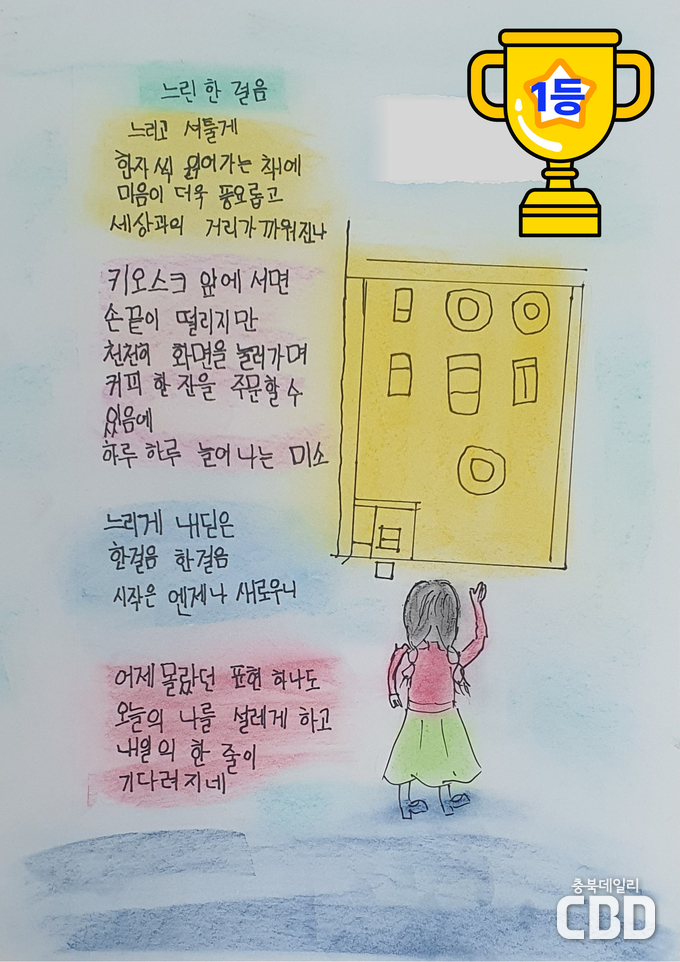 느린 한 걸음
느리고 서툴게
한자씩 읽어가는 책에
마음이 더욱 풍요롭고
세상과의 거리가 까워진다
키오스크 앞에 서면
손끝이 떨리지만
천천히 화면을 눌러가며
커피 한 잔을 주문할 수
있음에
하루하루 늘어나는 미소
느리게 내딛은
한걸음 한걸음
시작은 엔제나 새로우니
어제 몰랐던 표현 하나도
오늘의 나를 설레게 하고
내일의 한 줄이
기다려지네
1등
충북데일리
CBD